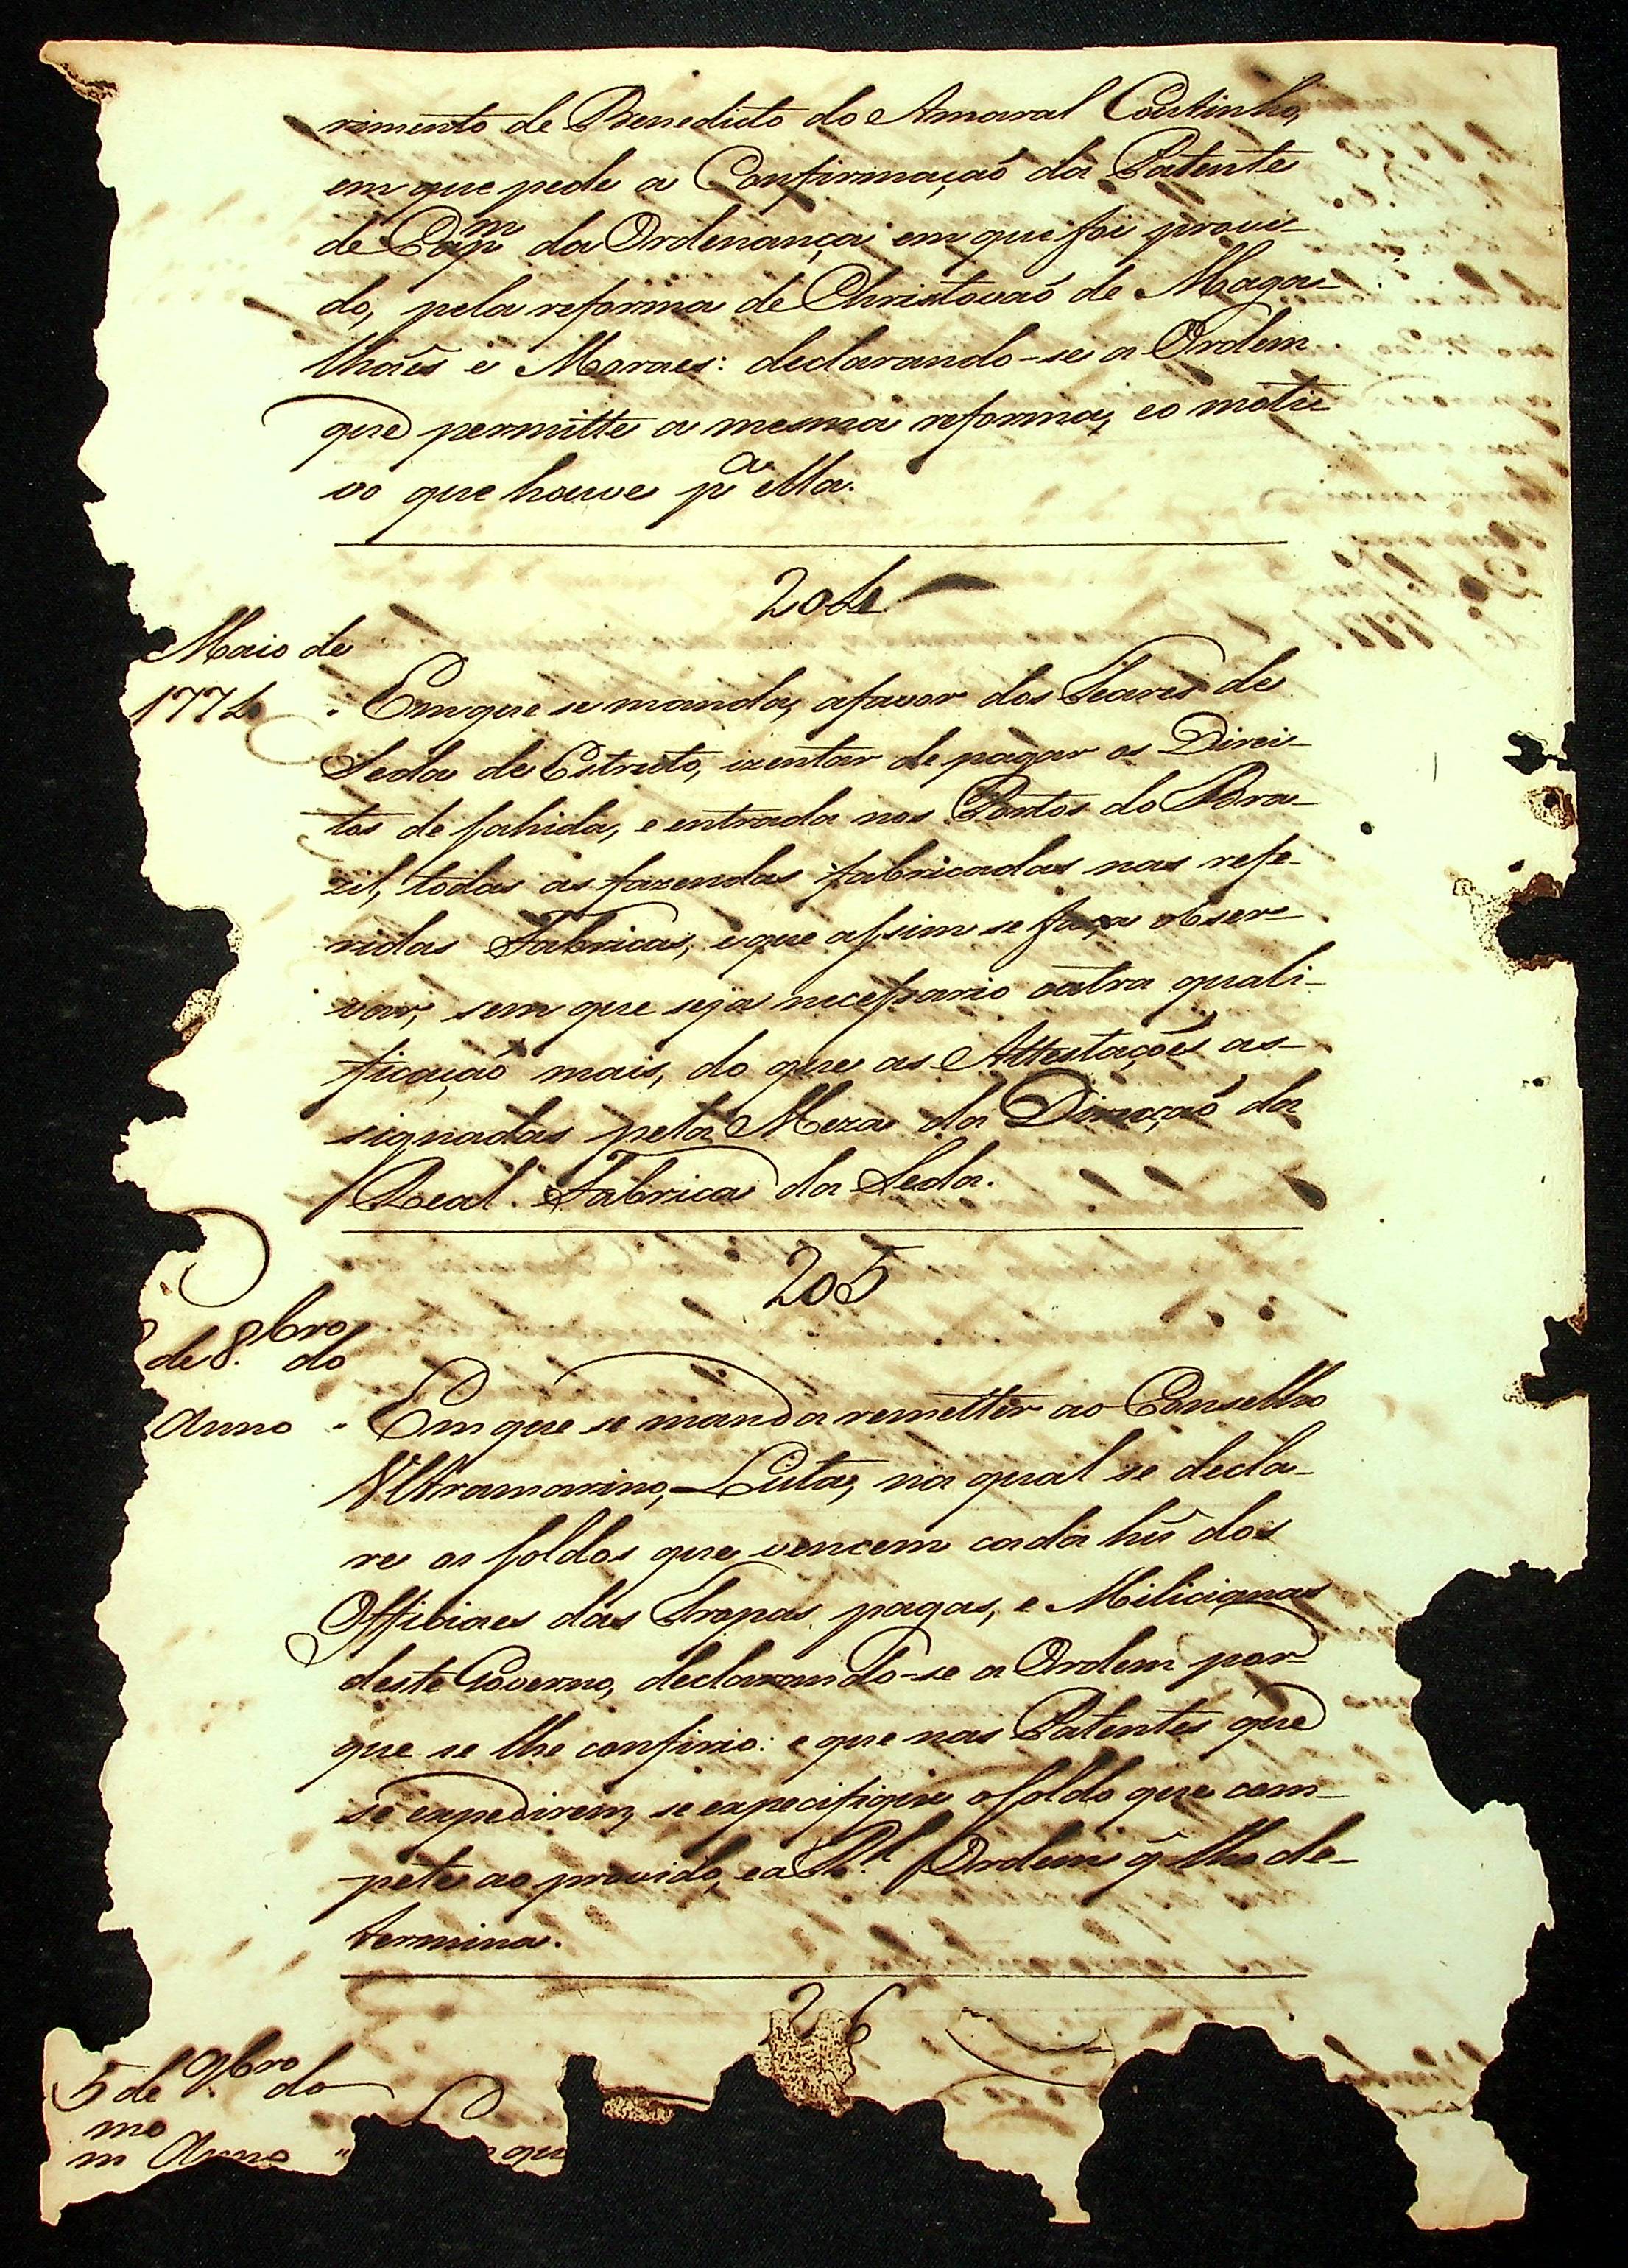 rimento de Benedicto do Amaral Coutinho,
em que pede a Confirmaçaõ da Patente
de Capm da Ordenança em que foi provi-
do, pela reforma de Christovaõ de Maga-
lhaẽs e Moraes: declarando-se a Ordem
que permitte a mesma reforma, e o moti-
vo que houve pa ella.
204
Maio de
1774 . Em que se manda, a favor dos Teares de
Seda de Estreito, izentar de pagar os Direi-
tos de sahida, e entrada nos Portos do Bra-
zil, todas as fazendas fabricadas nas refe-
ridas Fabricas, e que assim se faça obser-
var, sem que seja necessario outra quali-
ficaçaõ mais, do que as Attestaçoẽs as-
signadas pela Meza da Direcçaõ da
Real Fabrica da Seda.
205
de 8.bro do
Anno . Em que se manda remetter ao Conselho
Ultramarino, Lista, na qual se decla-
re os soldos que vencem cada hũ dos
Officiaes das Tropas pagas, e Milicianas
deste Governo, declarando-se a Ordem por-
que se lhe confirio: e que nas Patentes que
se expedirem, se expecifique o soldo que com-
pete ao provido, e a Rl. Ordem q̃ lho de-
termina.
2 6
5 de 9.bro do
mmo Anno " que